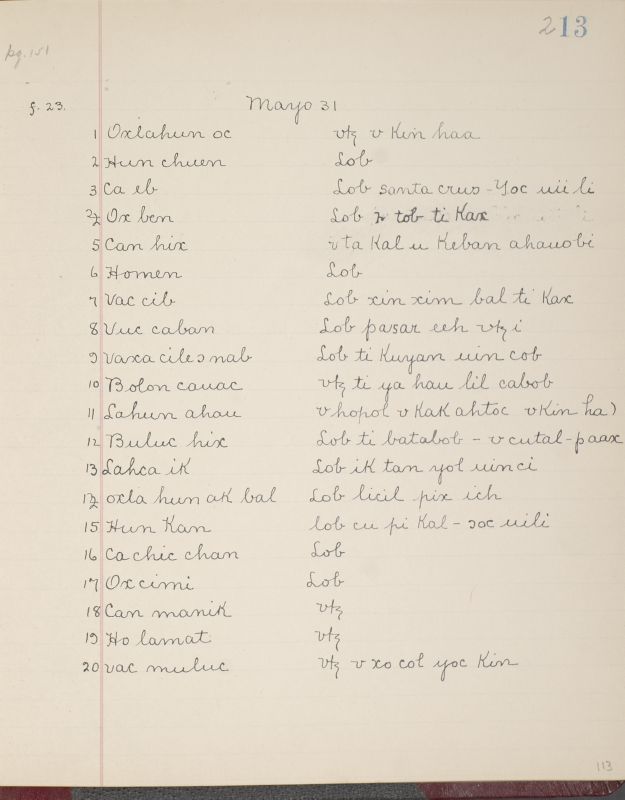 213
pg. 151
f. 23. Mayo 31
1 Oxlahun oc vtz v Kin haa
2 Hun chuen Lob
3 Ca eb Lob santa crus - Yoc uii li
4 Ox ben Lob tob ti Kax
5 Can hix v ta Kal u Keban ahauobi
6 Homen Lob
7 Vac cib Lob xin xim bal ti Kax
8 Vuc caban Lob pasar ceh vtz i
9 vaxa cil eɔ nab Lob ti Kuyan uin cob
10 Bolon cauac vtz ti ya hau lil cabob
11 Lahun ahau v hopol v KaK ahtoc v Kin ha)
12 Buluc hix Lob ti batabob - v cutal - paax
13 Lahca ik Lob iK tan yol uinci
14 oxla hun aK bal Lob licil pix ich
15 Hun Kan lob cu pi Kal - ɔoc uili
16 Ca chic chan Lob
17 Ox cimi Lob
18 Can maniK vtz
19 Ho lamat vtz
20 vac muluc vtz v xo col yoc Kin
113